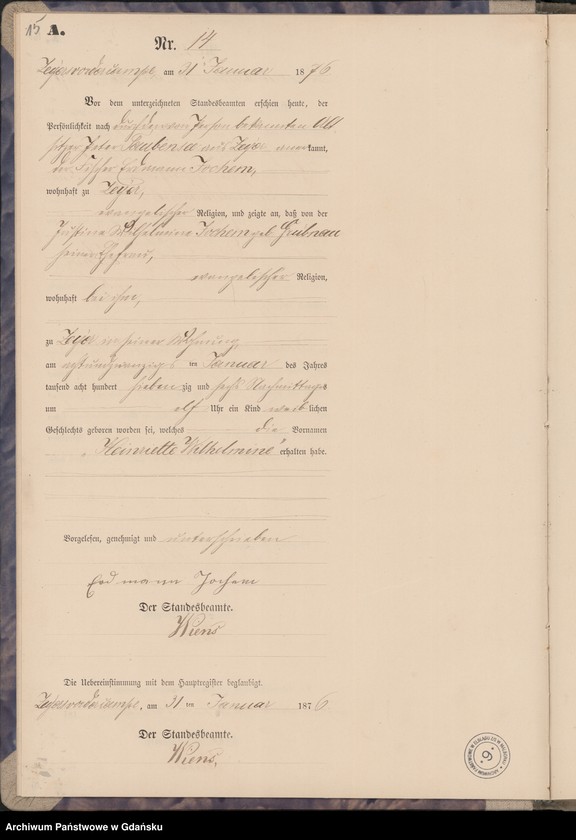 15 A.
Nr. 14
Zeyersvorderkampe, am 31 Januar 1876
Vor dem unterzeichneten Standesbeamten erschien heute, der
Persönlichkeit nach durch den von Person bekannten
Peter aus Zeyer anerkannt,
der Fischer Erdmann Jochem,
wohnhaft zu Zeyer,
evangelischer Religion, und zeigte an, daß von der
Justine Wilhelmine Jochem geb. Grubnau
seiner Ehefrau,
evangelischer Religion,
wohnhaft bei ihm,
zu Zeyer in seiner Wohnung
am achtundzwanzigsten Januar des Jahres
tausend acht hundert siebenzig und sechs Nachmittags
um elf Uhr ein Kind weiblichen
Geschlechts geboren worden sei, welches die Vornamen
„Heinriette Wilhelmine“ erhalten habe.
Vorgelesen, genehmigt und unterschrieben
Erdmann Jochem
Der Standesbeamte.
Wiens
Die Uebereinstimmung mit dem Hauptregister beglaubigt.
Zeyersvorderkampe, am 31 ten Januar 1876
Der Standesbeamte.
Wiens.
Archiwum Państwowe w Gdańsku